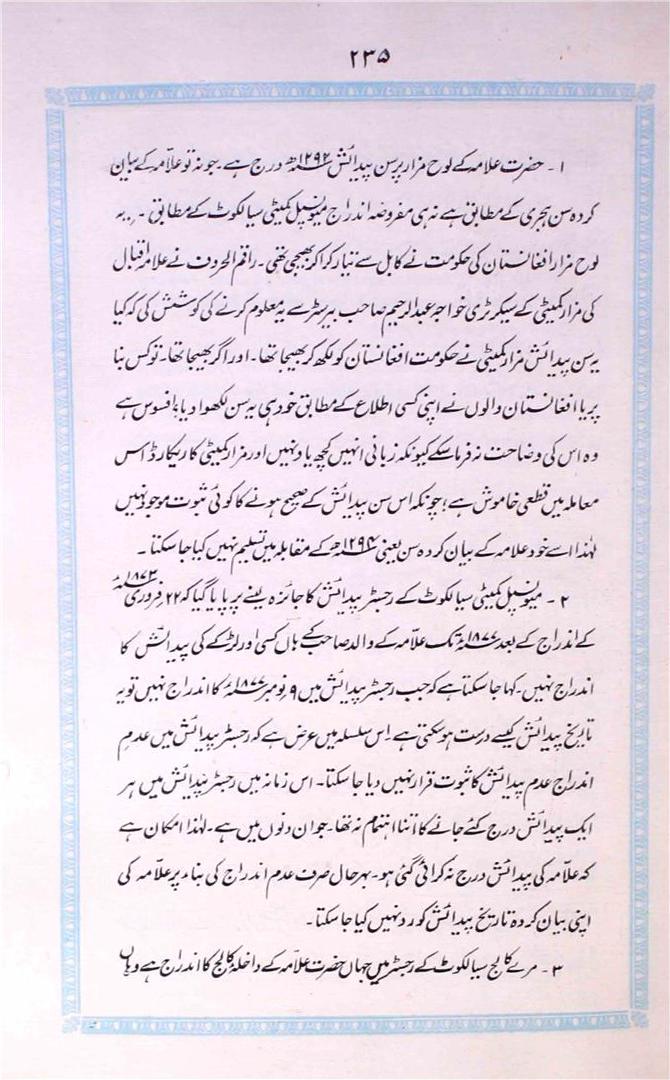 ۲۳۵
۱ - حضرت علامہ کے لوح مزار پر سن پیدائش ۱۲۹۲ھ درج ہے۔ جو نہ تو علامہ کے بیان
کردہ سن ہجری کے مطابق ہے نہ ہی مفروضہ اندراج میونسپل کمیٹی سیالکوٹ کے مطابق ۔ یہ
لوح مزار افغانستان کی حکومت نے کابل سے تیار کرا کر بھیجی تھی۔ راقم الحروف نے علامہ اقبال
کی مزار کمیٹی کے سیکرٹری خواجہ عبدالرحیم صاحب بیرسٹر سے یہ معلوم کرنے کی کوشش کی کہ کیا
یہ سن پیدائش مزار کمیٹی نے حکومت افغانستان کو لکھ کر بھیجا تھا۔ اور اگر بھیجا تھا۔ تو کس بنا
پر یا افغانستان والوں نے اپنی کسی اطلاع کے مطابق خود ہی یہ سن لکھوا دیا؛ افسوس ہے
وہ اس کی وضاحت نہ فرما سکے کیونکہ زبانی انہیں کچھ یاد نہیں اور مزار کمیٹی کا ریکارڈ اس
معاملہ میں قطعی خاموش ہے؛ چونکہ اس سن پیدائش کے صحیح ہونے کا کوئی ثبوت موجود نہیں
لہٰذا اسے خود علامہ کے بیان کردہ سن یعنی ۱۲۹۴ھ کے مقابلہ میں تسلیم نہیں کیا جا سکتا ۔
۲ - میونسپل کمیٹی سیالکوٹ کے رجسٹر پیدائش کا جائزہ لینے پر پایا گیا کہ ۲۲ فروری ۱۸۷۳ء
کے اندراج کے بعد ۱۸۷۷ء تک علامہ کے والد صاحب کے ہاں کسی اور لڑکے کی پیدائش کا
اندراج نہیں۔ کہا جا سکتا ہے کہ جب رجسٹر پیدائش میں ۹ نومبر ۱۸۷۷ء کا اندراج نہیں تو یہ
تاریخ پیدائش کیسے درست ہو سکتی ہے۔ اس سلسلہ میں عرض ہے کہ رجسٹر پیدائش میں عدمِ
اندراج عدم پیدائش کا ثبوت قرار نہیں دیا جا سکتا۔ اس زمانہ میں رجسٹر پیدائش میں ہر
ایک پیدائش درج کئے جانے کا اتنا اہتمام نہ تھا۔ جو ان دنوں میں ہے۔ لہٰذا امکان ہے
کہ علامہ کی پیدائش درج نہ کرائی گئی ہو۔ بہرحال صرف عدم اندراج کی بناء پر علامہ کی
اپنی بیان کردہ تاریخ پیدائش کو رد نہیں کیا جا سکتا۔
۳ - مرے کالج سیالکوٹ کے رجسٹر میں جہاں حضرت علامہ کے داخلہ کالج کا اندراج ہے وہاں